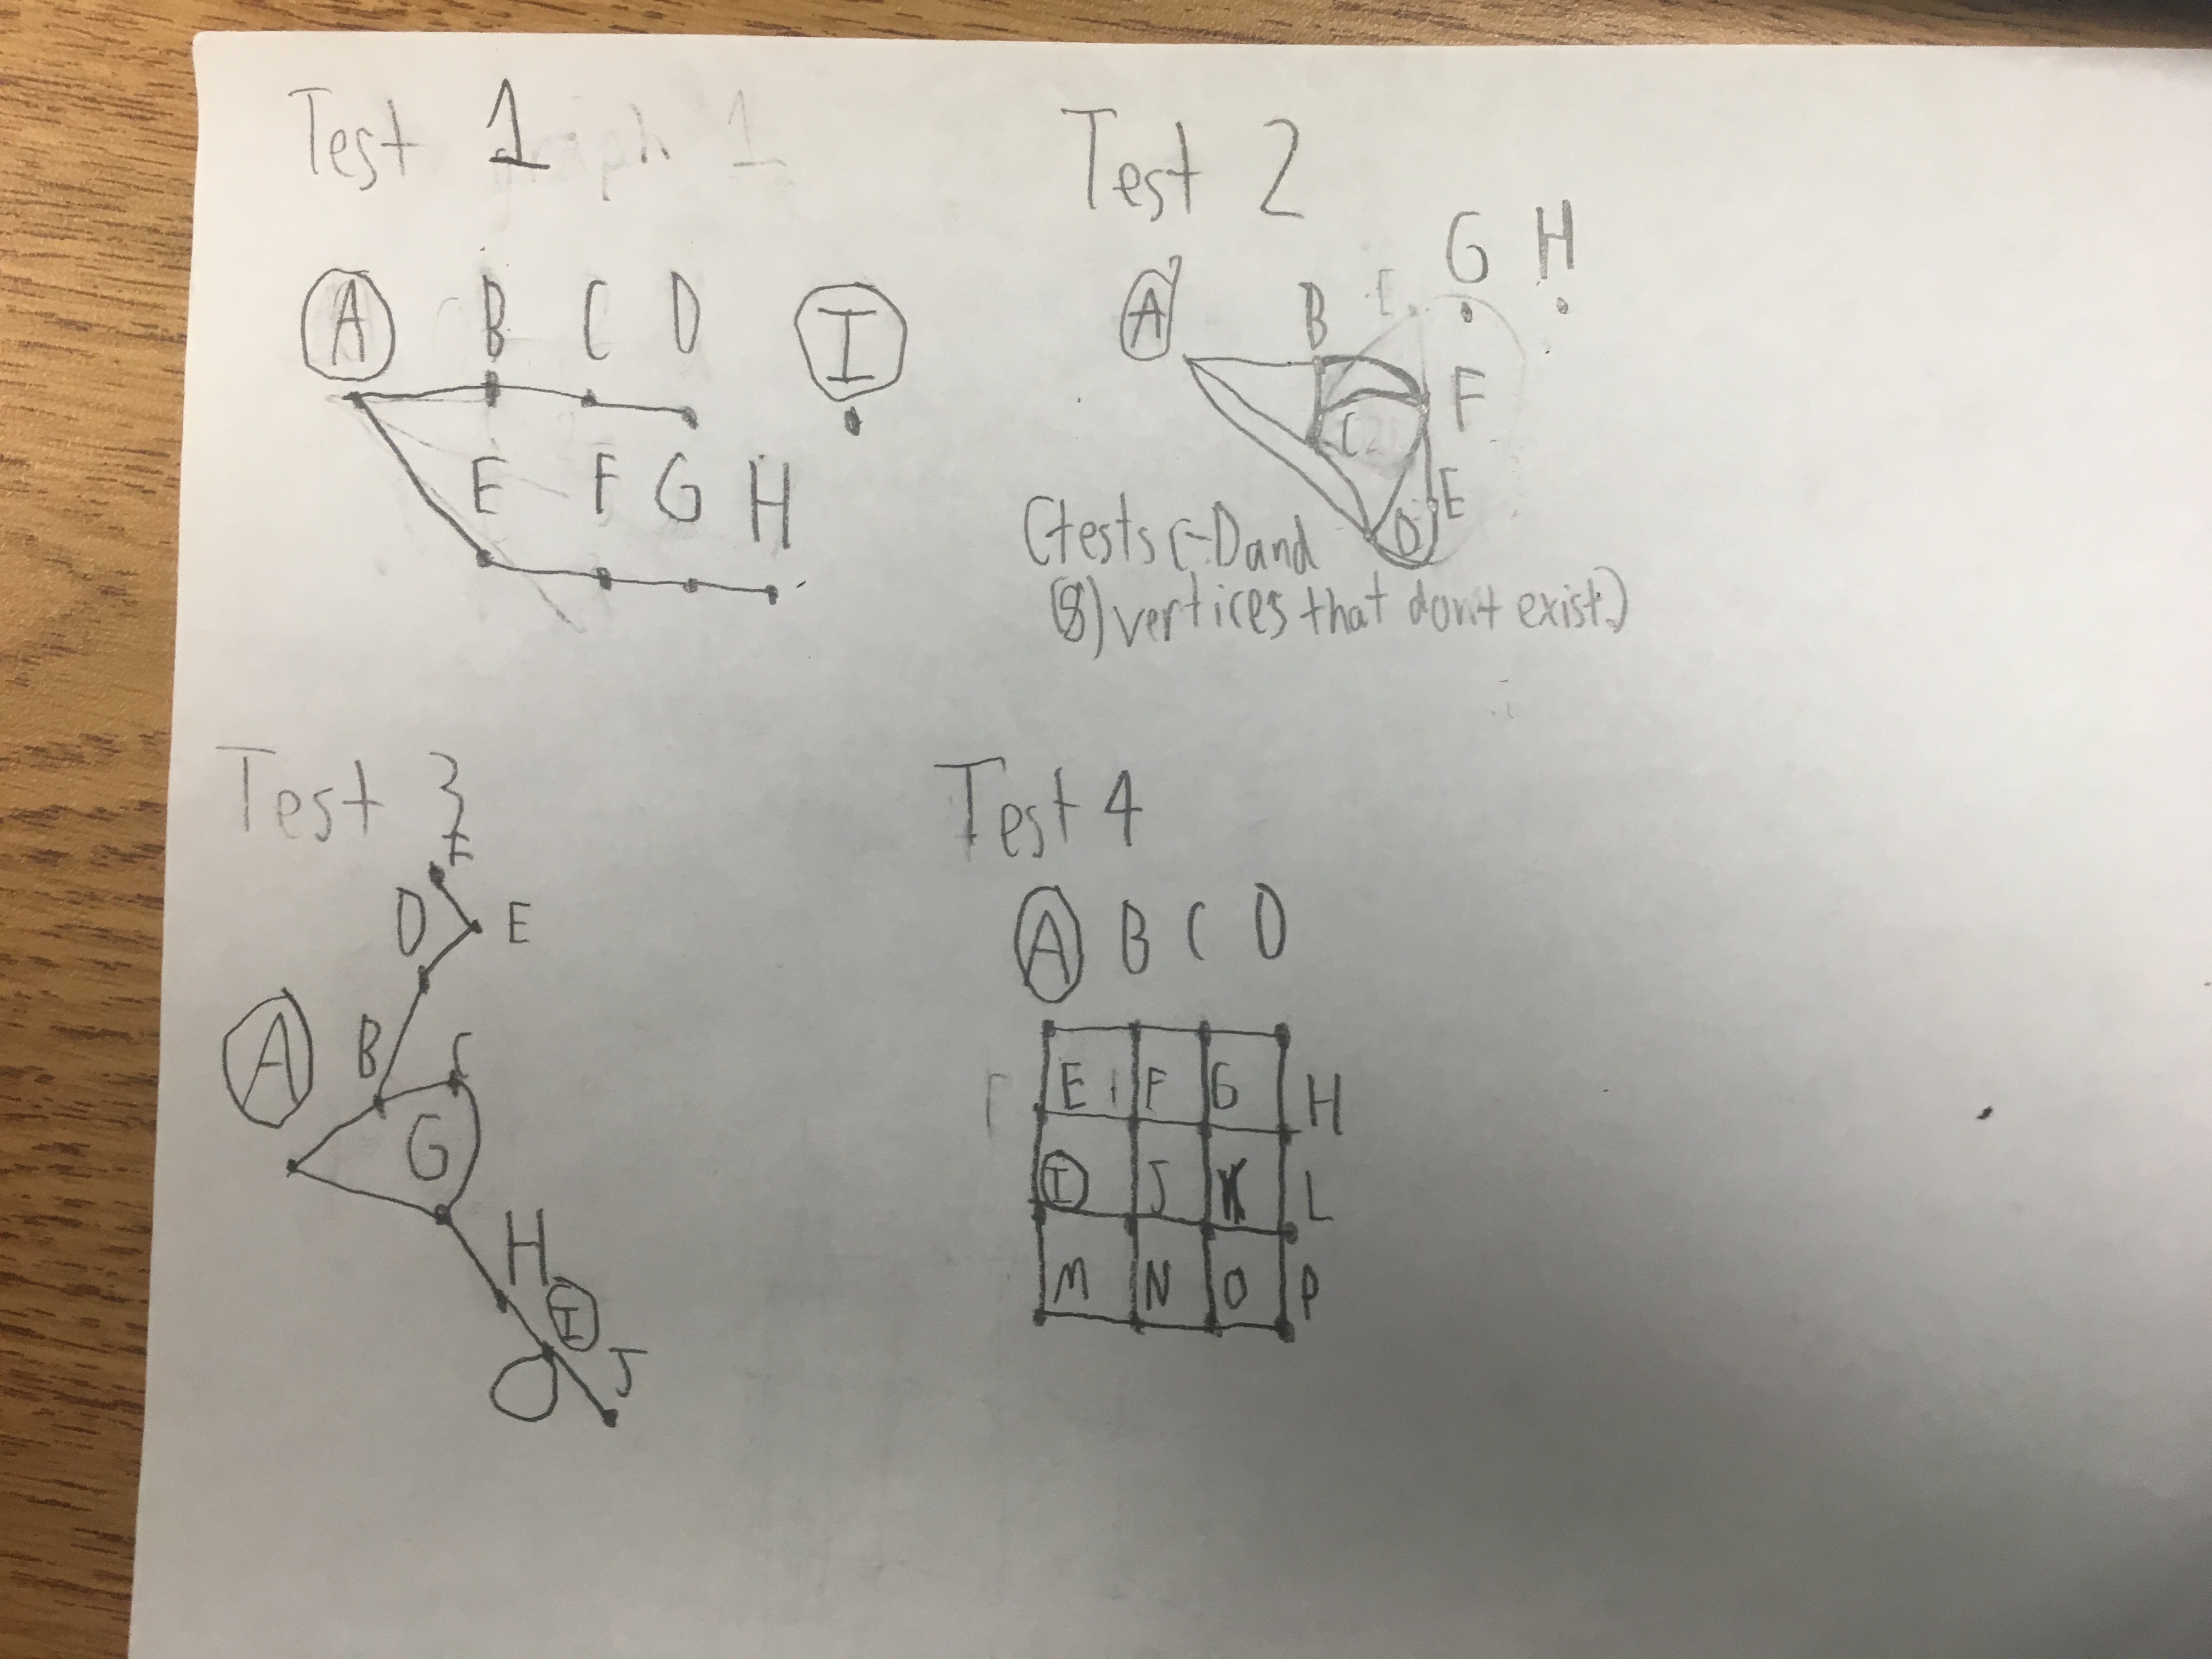 Test 1
A B C D I
E F G H
Test 2
G H
A B
F
C
E
D
(tests C-D and
(8) vertices that dont exist)
Test 3
F
D E
A B C
G
H
I
J
Test 4
A B C D
E F G H
I J K L
M N O P